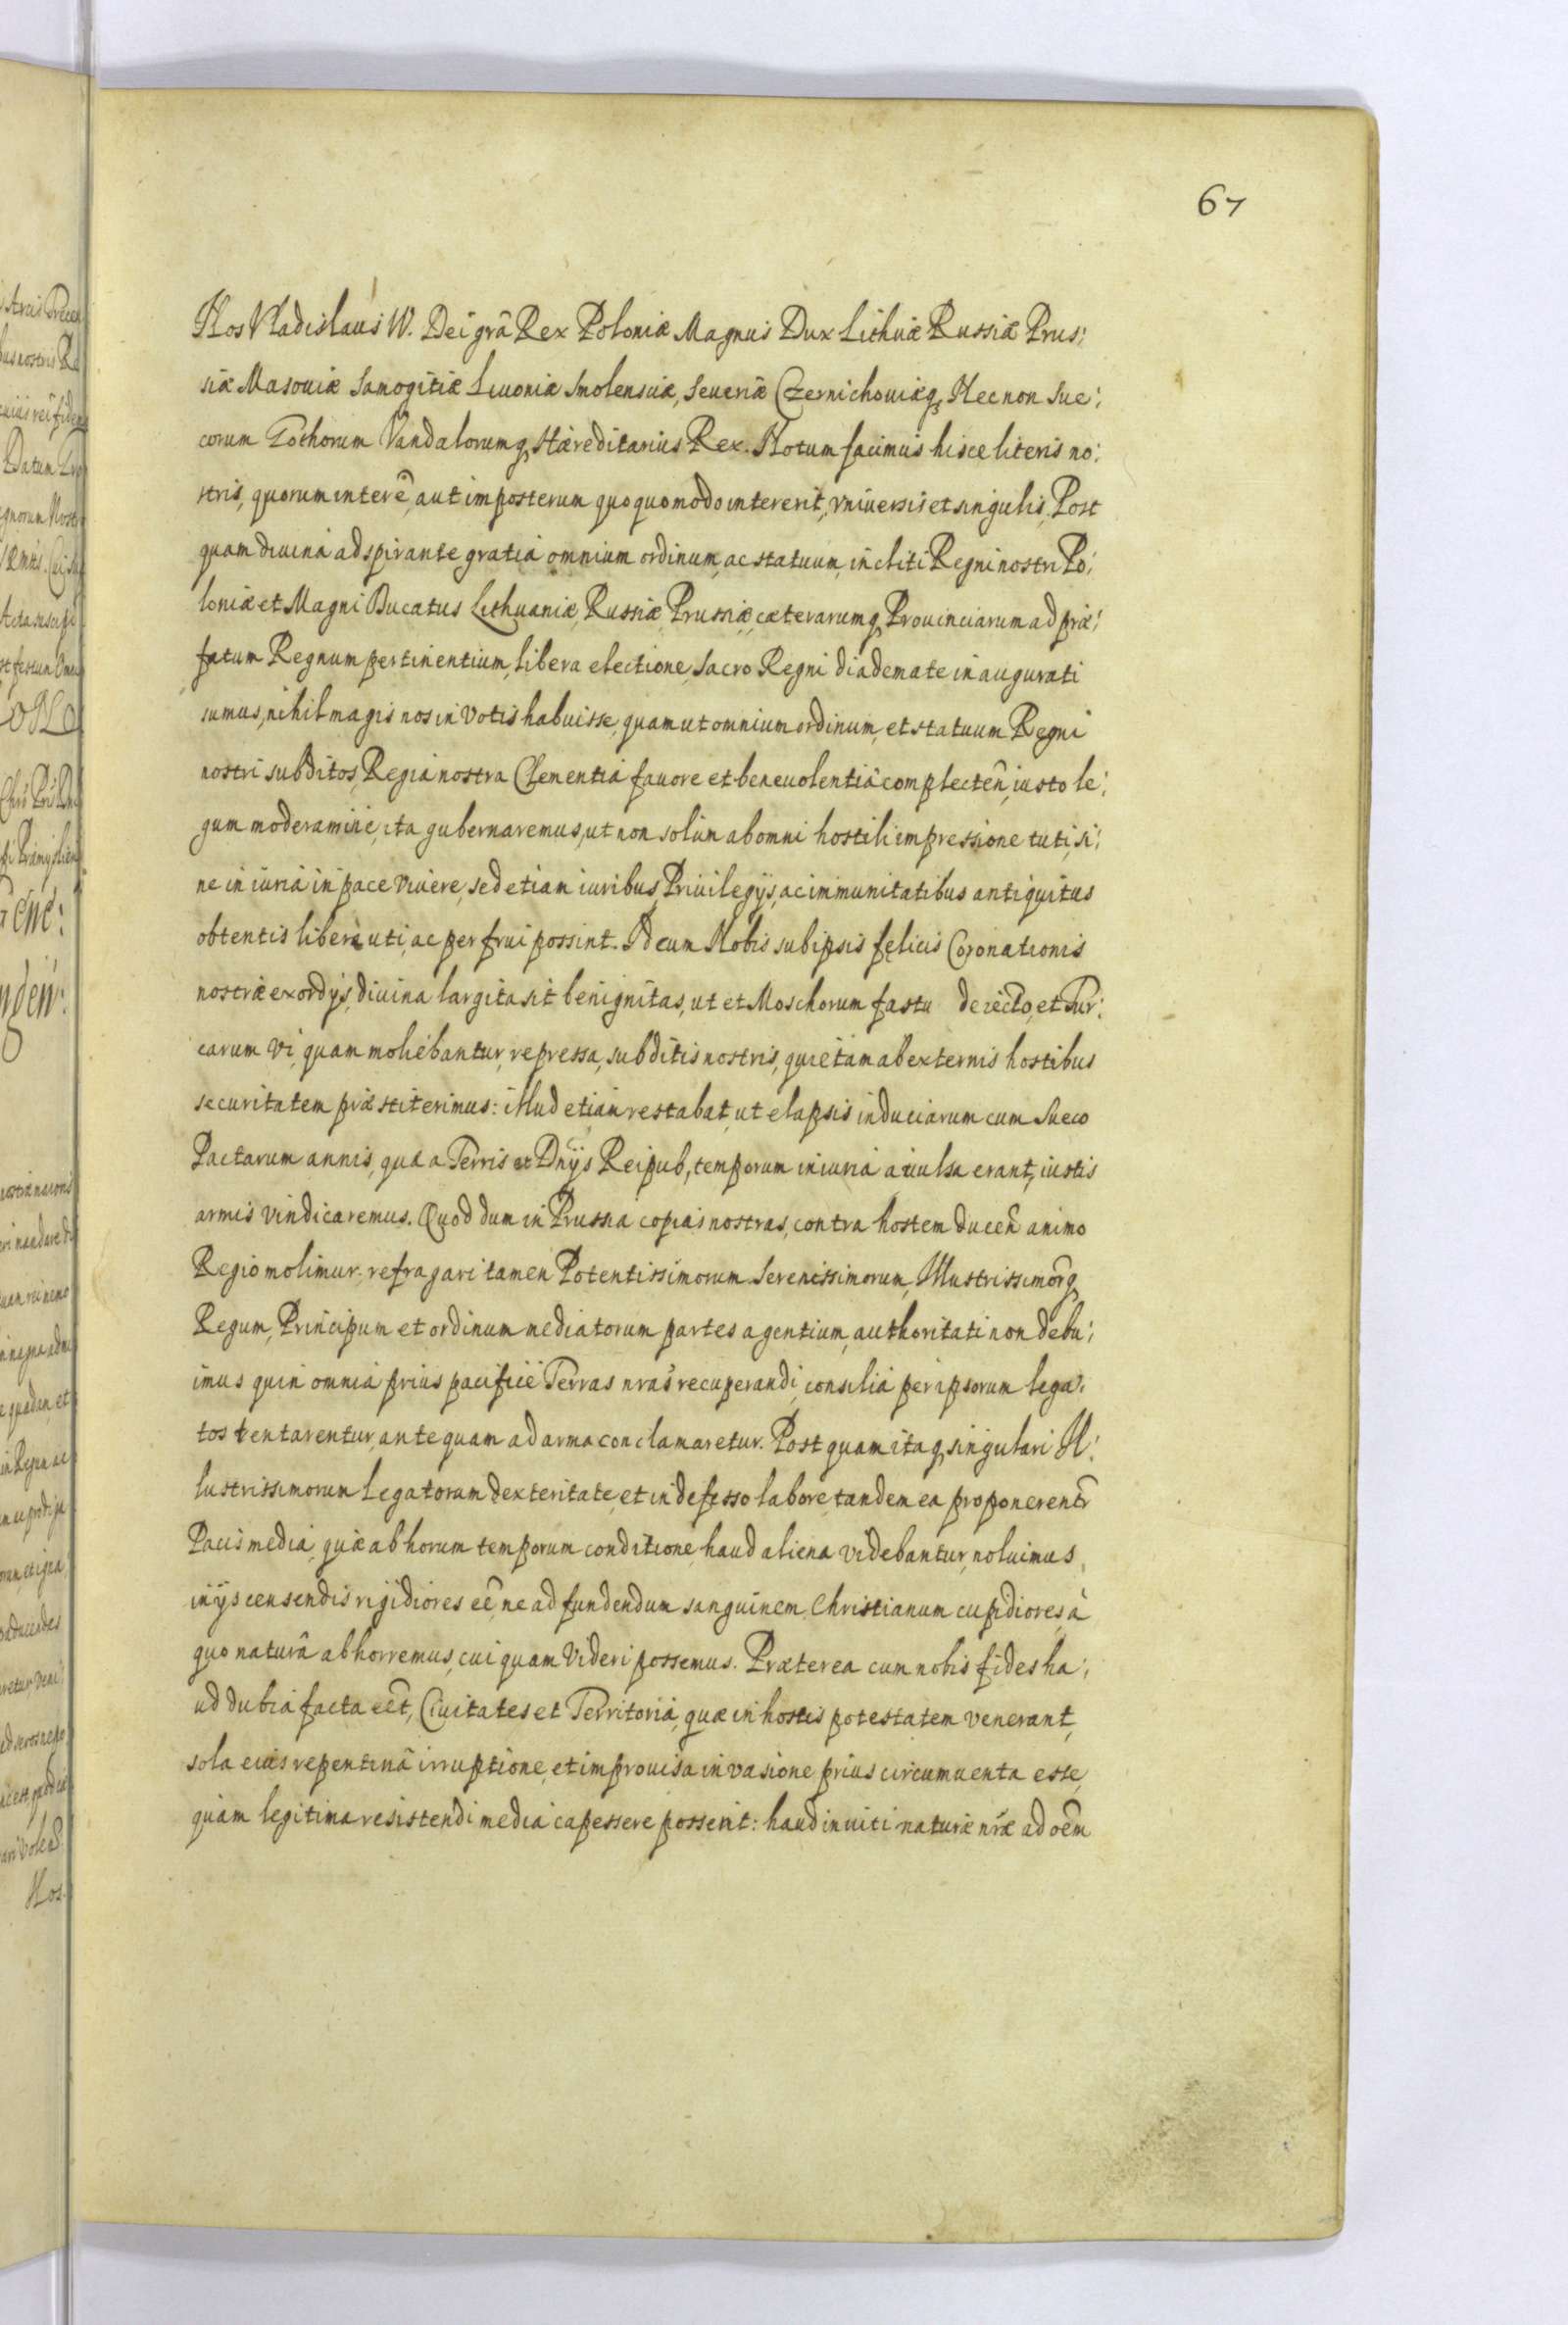 67
Nos Vladislaus IV. Dei grã Rex Poloniæ Magnus Dux Lithuæ Russiæ Prus:
siæ Masouiæ Samogitiæ Liuoniæ Smolensciæ, Seueriæ Czernichouiæq, Nec non Sue:
corum Gothorum Vandalorumq, Hæreditarius Rex. Notum facimus hisce literis no:
stris, quorum interẽ, aut imposterum quoquomodo intererit, vniuersis et singulis, Post
quam diuina adspirante gratia omnium ordinum, ac statuum, incliti Regni nostri Po:
loniæ et Magni Ducatus Lithuaniæ, Russiæ Prussiæ, cæterarumq, Prouinciarum ad præ:
fatum Regnum pertinentium, libera electione, sacro Regni diademate inaugurati
sumus, nihil magis nos in votis habuisse, quam ut omnium ordinum, et statuum Regni
nostri subditos, Regia nostra Clementia fauore et beneuolentia complecteñ, iusto le:
gum moderamine, ita gubernaremus, ut non solum ab omni hostili impressione tuti, si:
ne iniuria in pace viuere, sed etiam iuribus, Priuilegijs, ac immunitatibus antiquitus
obtentis libere uti, ac perfrui possint. Id cum Nobis sub ipsis felicis Coronationis
nostræ exordijs, diuina largita sit benignitas, ut et Moschorum fastu deiecto, et Tur:
carum vi, quam moliebantur, repressa, subditis nostris, quietam ab externis hostibus
securitatem præstiterimus: illud etiam restabat, ut elapsis induciarum cum Sueco
Pactarum annis, quæ a Terris et Dnijs Reipub, temporum iniuria auulsa erant, iustis
armis vindicaremus. Quod dum in Prussia copias nostras, contra hostem duceñ animo
Regio molimur, refragari tamen Potentissimorum Serenissimorum, Illustrissimorq
Regum, Principum et ordinum mediatorum partes agentium, authoritati non debu:
imus quin omnia prius pacificè Terras nras recuperandi, consilia per ipsorum lega:
tos tentarentur, antequam ad arma conclamaretur. Postquam itaq, singulari Il:
lustrissimorum Legatorum dexteritate, et indefesso labore, tandem ea proponerentr
Pacis media, quæ ab horum temporum conditione haud aliena videbantur, noluimus
in ijs censendis rigidiores eẽ, ne ad fundendum sanguinem Christianum cupidiores, à
quo naturâ abhorremus, cuiquam videri possemus. Præterea cum nobis fides ha:
ud dubia facta eẽt, Ciuitates et Territoria, quæ in hostis potestatem venerant,
sola eius repentinâ irruptione, et improuisa inuasione prius circumuenta esse,
quàm legitima resistendi media capessere possent: haud inuiti naturæ nræ ad oẽm